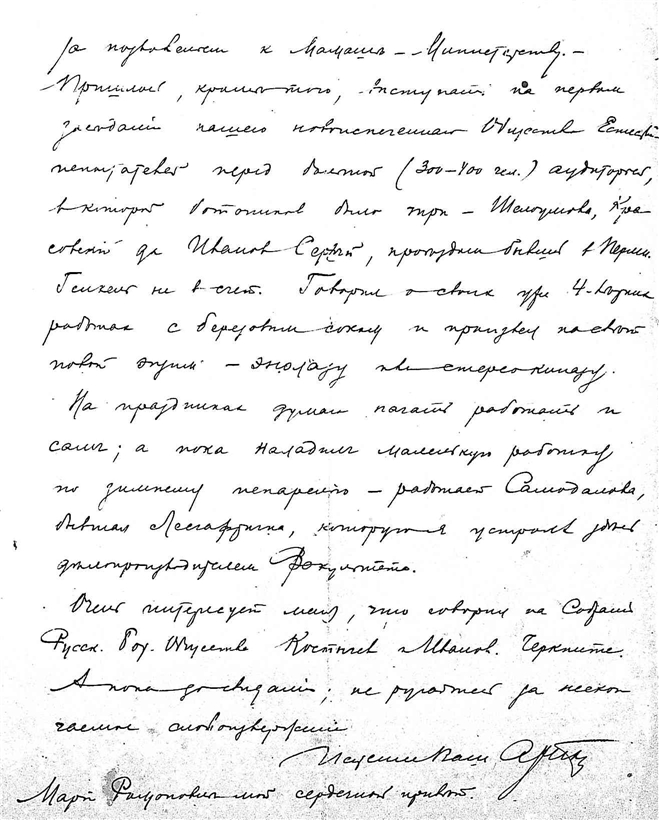 за подъ к Мамаше – Министерству. –
Пришлось, кроме того, выступать на первом
заседании нашего новоиспеченного Общества Естество
перед большой (300–400 чел.) аудиторией,
в которой ботаников было три – Шелоумова, Кра
совский да Иванов Сергей, проездом бывший в Перми.
Генкель не в счет. Говорил о своих уже 4-летних
работах с березовым соком и произвел на свет
новый энзим – энолазу или стереокиназу.
На праздниках думаю начать работать и
сам; а пока наладил маленькую работку
по зимнему испарению – работает Самодалова,
бывшая Лесгафтичка, которую я устроил здесь
делопроизводителем Факультета.
Очень интересует меня, что говорил на Собрании
Русск. Бот. Общества Костычев и Иванов. Черкните.
А пока до свидания; не ругайтесь за нескон
чаемое словоизвержение
Ваш
Марии Рамоновне мой сердечный привет.